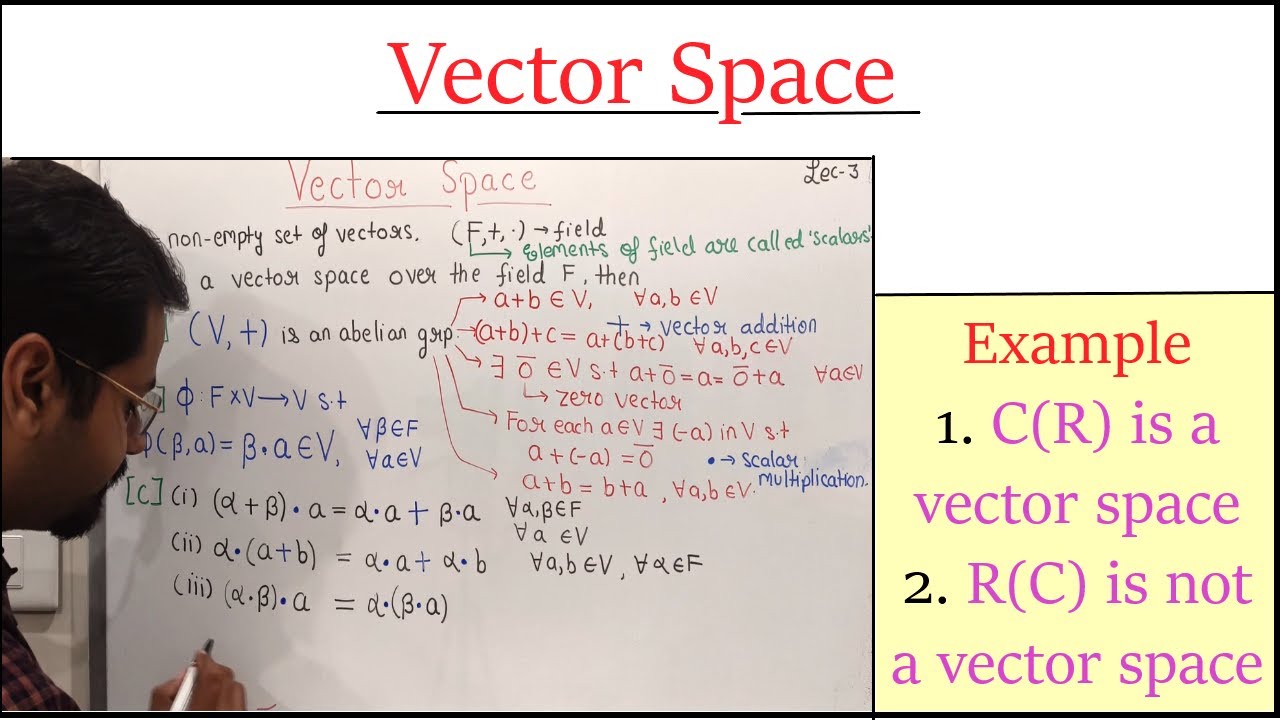 Vector Space
Vector Space
Lec-3
non-empty set of vectors. (F,+,·) → field
→ Elements of field are called 'scalars'
a vector space over the field F, then
→ a+b ∈ V, ∀a,b ∈ V
(V,+) is an abelian grp. → (a+b)+c = a+(b+c) ∀ a,b,c ∈ V
+ → vector addition
→ ∃ 0̅ ∈ V s.t a+0̅ = a = 0̅+a ∀a∈V
→ zero vector
] ϕ : F×V → V s.t
→ For each a ∈ V ∃ (-a) in V s.t
ϕ(β,a) = β·a ∈ V, ∀β∈F
∀a∈V
a+(-a) = 0̅
• → scalar
multiplication.
→ a+b = b+a, ∀a,b∈V.
[C] (i) (α+β)·a = α·a + β·a ∀α,β∈F
∀a ∈V
(ii) α·(a+b) = α·a + α·b ∀a,b∈V, ∀α∈F
(iii) (α·β)·a = α·(β·a)
Example
1. C(R) is a
vector space
2. R(C) is not
a vector space